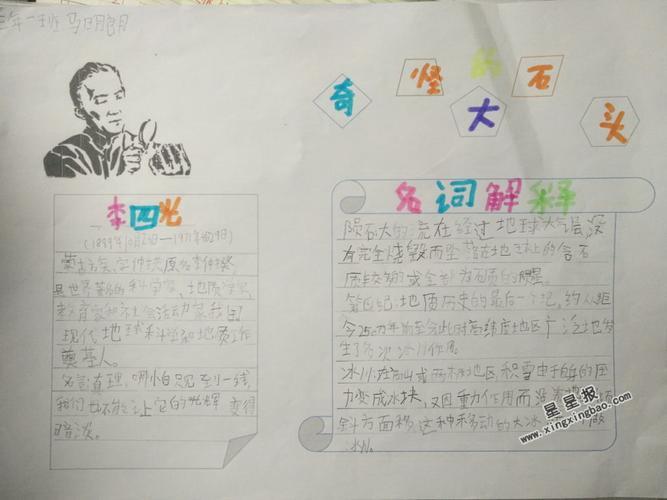 三年一班
奇怪的大石头
李四光
(1889年10月26日—1971年4月29日)
蒙古族,字仲揆原名李仲揆
是世界著名的科学家、地质学家
教育家和社会活动家我国
现代地球科学和地质工作
奠基人。
名言真理,哪怕只见到一线,
我们也不能让它的光辉 变得
暗淡。
名词解释
陨石大的流在经过地球大气层没
有完全烧毁而坠落在地球上的含石
质较多或全部为石质的陨星。
第四纪:地质历史的最后一个纪,约从距
今
发生了多次冰川作用。
冰川:在高山或两极地区,积雪由于自的压
力变成冰块,又因重力作用而沿着
斜方面移,这种移动的大冰 做
冰川。
星星报
www.xingxingbao.com